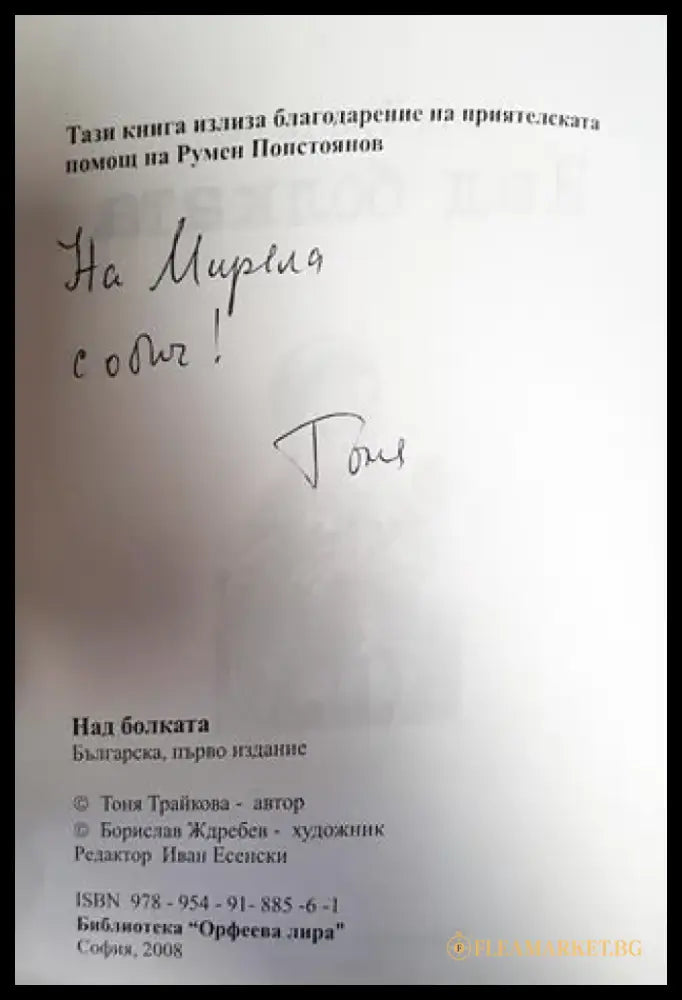 Тази книга излиза благодарение на приятелската
помощ на Румен Попстоянов
На Мирела
с обич!
Тоня
Над болката
Българска, първо издание
© Тоня Трайкова - автор
© Борислав Ждребев - художник
Редактор Иван Есенски
ISBN 978 - 954 - 91- 885 -6 -1
Библиотека "Орфеева лира"
София, 2008
FLEAMARKET.BG